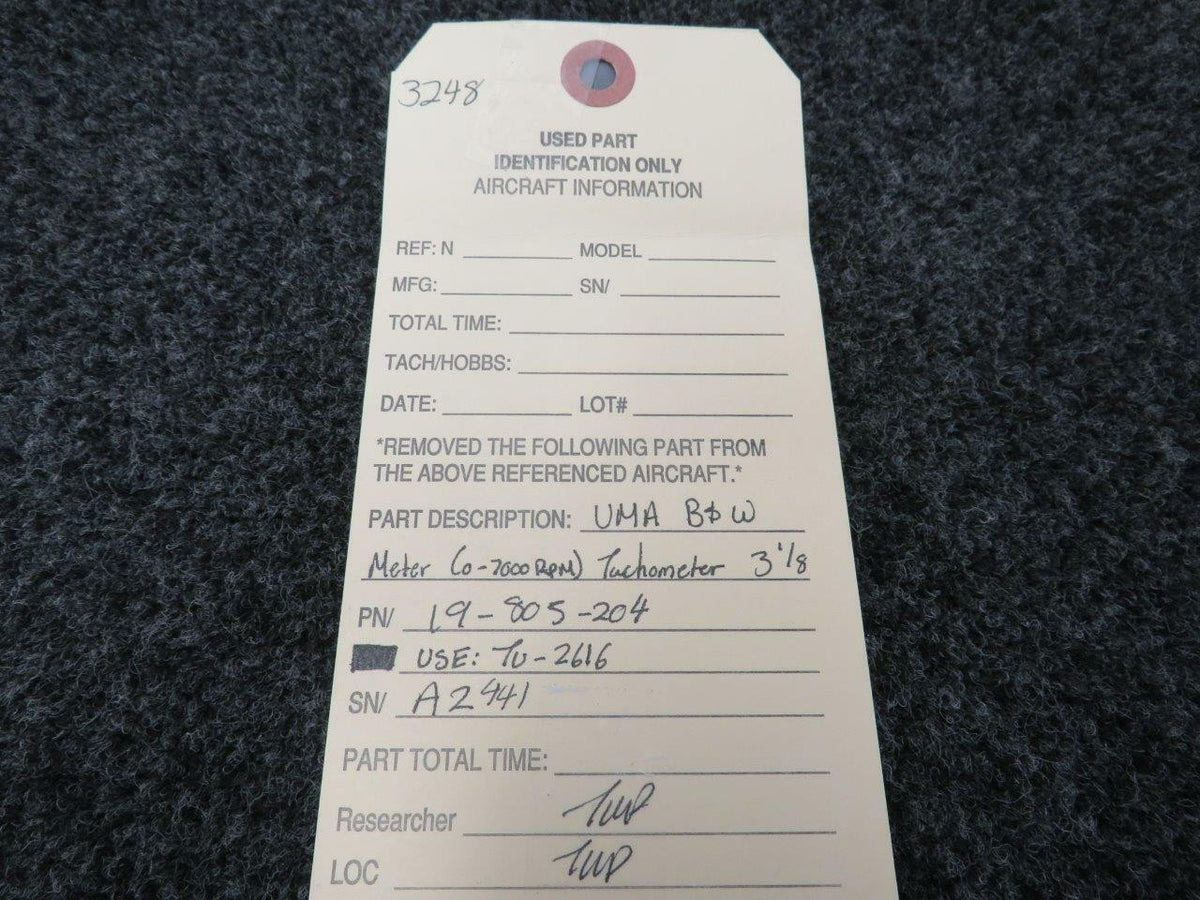 3248
USED PART
IDENTIFICATION ONLY
AIRCRAFT INFORMATION
REF: N MODEL
MFG: SN/
TOTAL TIME:
TACH/HOBBS:
DATE: LOT#
*REMOVED THE FOLLOWING PART FROM
THE ABOVE REFERENCED AIRCRAFT.*
PART DESCRIPTION: UMA B&W
Meter (0-7000 RPM) Tachometer 3 1/8
PN/ 19-805-204
USE: TU-2616
SN/ A2441
PART TOTAL TIME:
Researcher
LOC